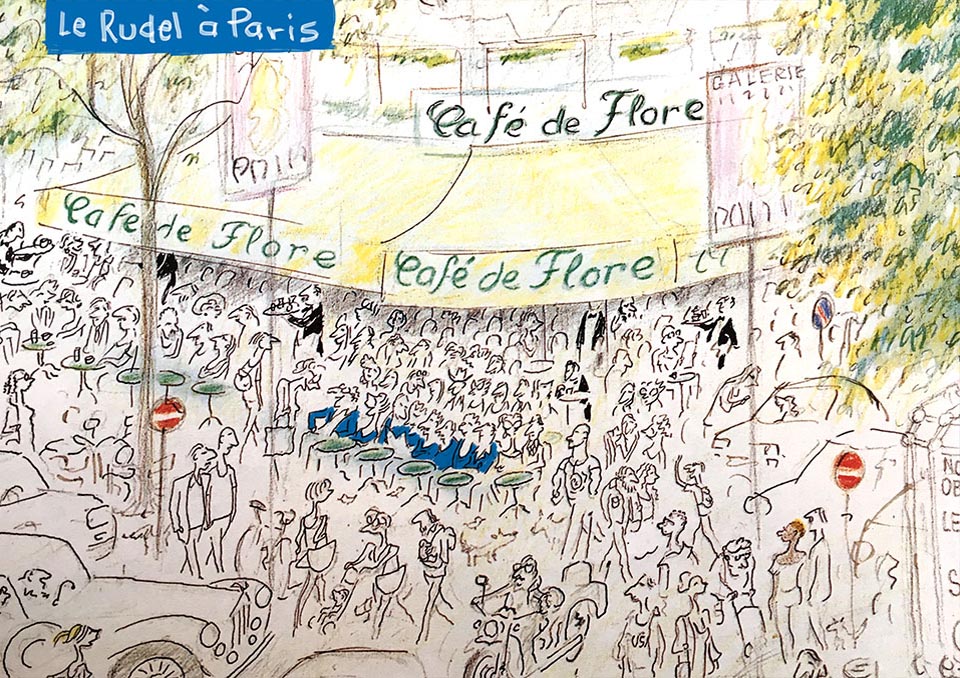 Le Rudel à Paris
GALERIE
Café de Flore
Cafe de Flore
Café de Flore
NO
OB
LE
S
USA